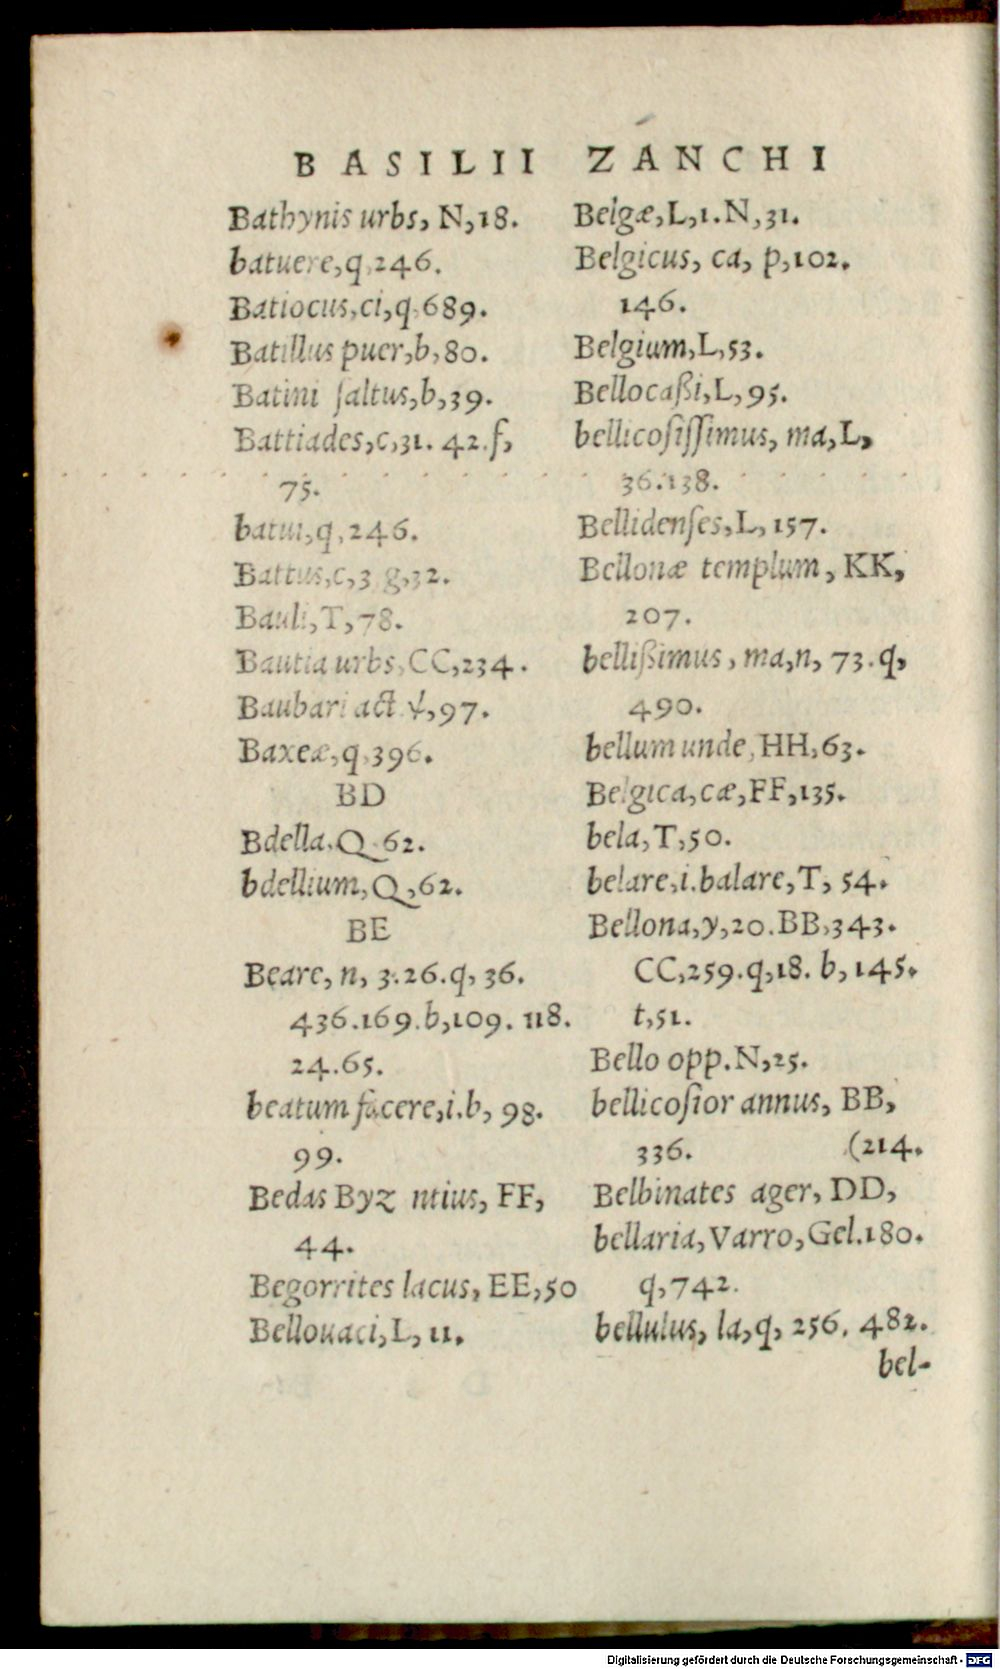 BASILII ZANCHI
Bathynis urbs, N,18.
batuere,q,246.
Batiocus,ci,q,689.
Batillus puer,b,80.
Batini ſaltus,b,39.
Battiades,c,31. 42.f,
75.
batui,q,246.
Battus,c,3 g,32.
Bauli,T,78.
Bautia urbs,CC,234.
Baubari act.ψ,97.
Baxeæ,q,396.
BD
Bdella.Q.62.
bdellium,Q,62.
BE
Beare, n, 3.26.q, 36.
436.169.b,109. 118.
24.65.
beatum facere,i.b, 98.
99.
Bedas Byz ntius, FF,
44.
Begorrites lacus, EE,50
Bellouaci,L, 11.
Belgæ,L,1.N,31.
Belgicus, ca, p,102.
146.
Belgium,L,53.
Bellocaßi,L,95.
bellicoſiſſimus, ma,L,
36.138.
Bellidenſes,L,157.
Bellonæ templum, KK,
207.
bellißimus, ma,n, 73.q,
490.
bellum unde,HH,63.
Belgica,cæ,FF,135.
bela,T,50.
belare,i.balare,T, 54.
Bellona,y,20.BB,343.
CC,259.q,18. b, 145.
t,51.
Bello opp.N,25.
bellicoſior annus, BB,
336. (214.
Belbinates ager, DD,
bellaria,Varro,Gel.180.
q,742.
bellulus, la,q, 256. 482.
bel-
Digitalisierung gefördert durch die Deutsche Forschungsgemeinschaft - DFG